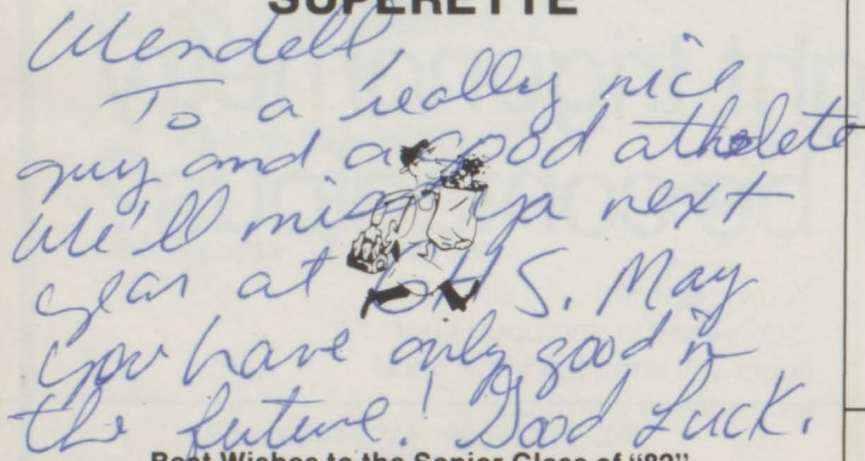 SUPERETTE
Wendell,
To a really nice
guy and a good athelete
We'll miss ya next
year at S. May
you have only good in
the future! Good Luck.
Best Wishes to the Senior Class of "82"